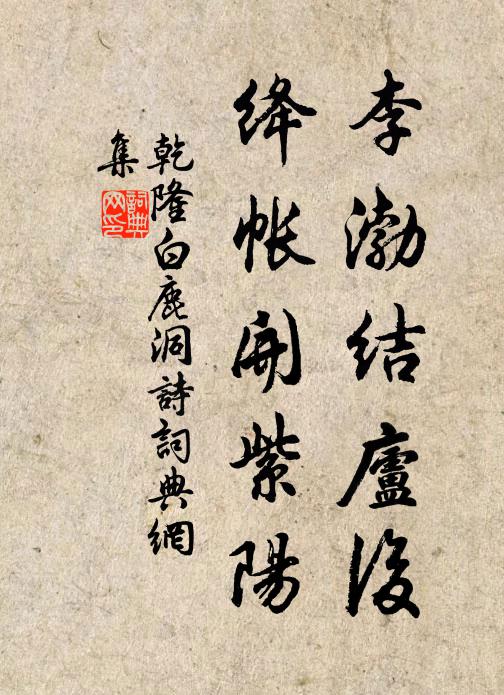 李渤結廬後
絳帳開紫陽
乾隆白鹿洞詩詞典網
集
詞典
网印